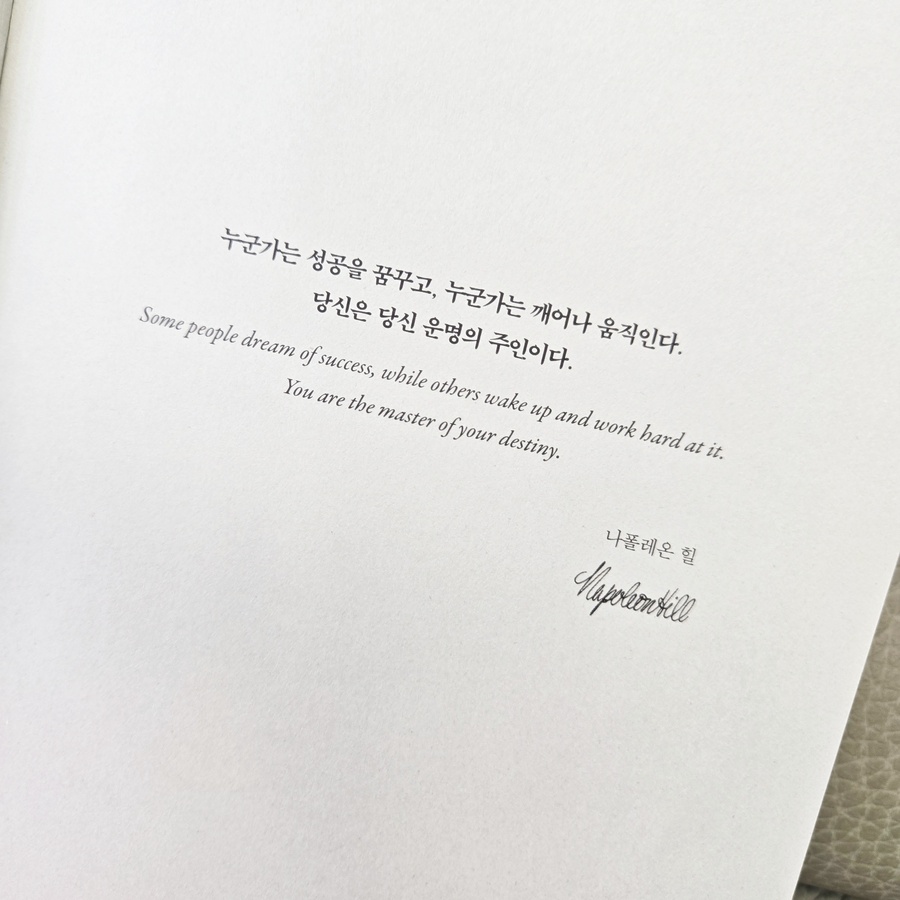 누군가는 성공을 꿈꾸고, 누군가는 깨어나 움직인다.
당신은 당신 운명의 주인이다.
Some people dream of success, while others wake up and work hard at it.
You are the master of your destiny.
나폴레온 힐
Napoleon Hill